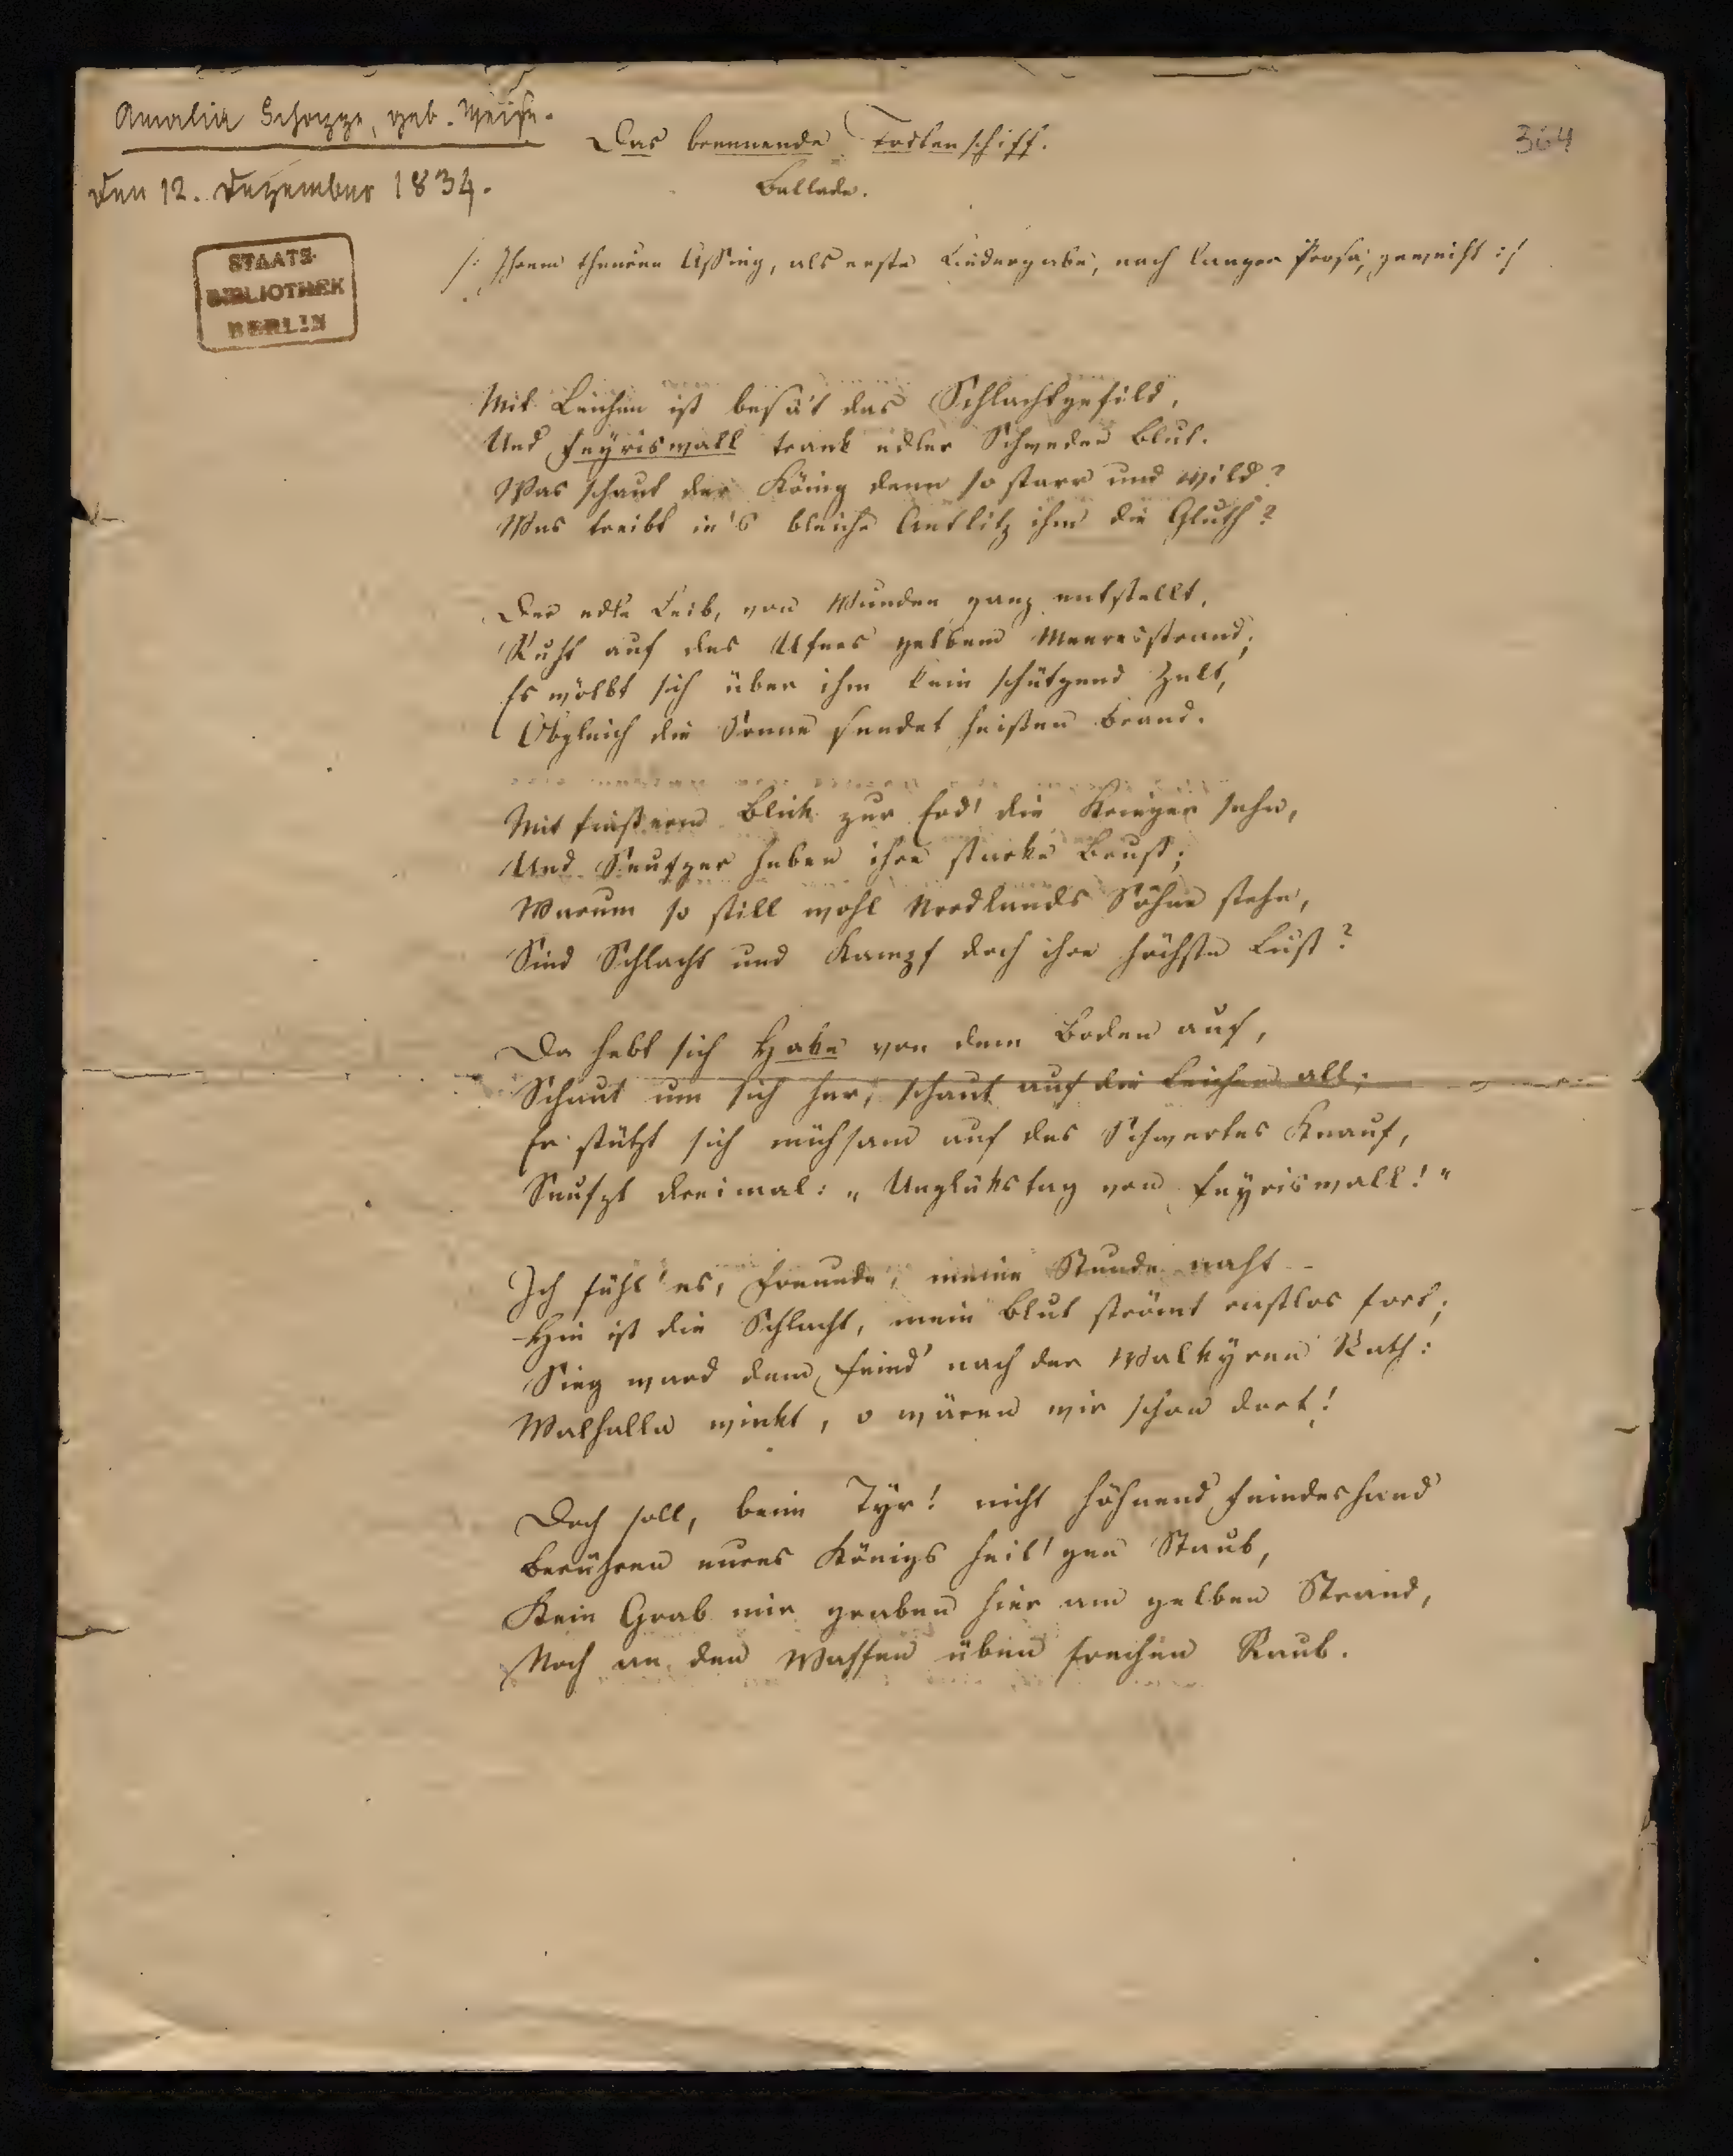 Amalia Schoppe, geb. Weise.
den 12. Dezember 1834.
Das brennende Todtenschiff.
364
Ballade.
STAATS-
BIBLIOTHEK
BERLIN
/: Ihrem theuren Assing, als erste Liedergabe, nach langer Prosa, geweiht :/
Mit Leichen ist besä't das Schlachtgefild,
Und Feyriswall trank edler Schweden Blut.
Was schaut der König denn so starr und wild?
Was treibt in's bleiche Antlitz ihm die Gluth?
Der edle Leib, von Wunden ganz entstellt,
Ruht auf des Ufers gelbem Meeresstrand;
Es wölbt sich über ihm kein schützend Zelt,
Obgleich die Sonne sendet heißen Brand.
Mit finsterm Blick zur Erd' die Krieger sehn,
Und Seufzer heben ihre starke Brust;
Warum so still wohl Nordlands Söhne stehn,
Sind Schlacht und Kampf doch ihre höchste Lust?
Da hebt sich Hake von dem Boden auf,
Schaut um sich her, schaut auf die Leichen all;
Er stützt sich mühsam auf des Schwertes Knauf,
Seufzt dreimal: „Unglükstag von Feyriswall!"
Ich fühl' es, Freunde, meine Stunde naht –
Hin ist die Schlacht, mein Blut strömt rastlos fort;
Sieg ward dem Feind' nach der Walkyren Rath:
Walhalla winkt, o wären wir schon dort!
Doch soll, beim Tyr! nicht höhnend Feindeshand
Berühren eures Königs heil'gen Staub,
Kein Grab mir graben hier am gelben Strand,
Noch an den Waffen üben frechen Raub.